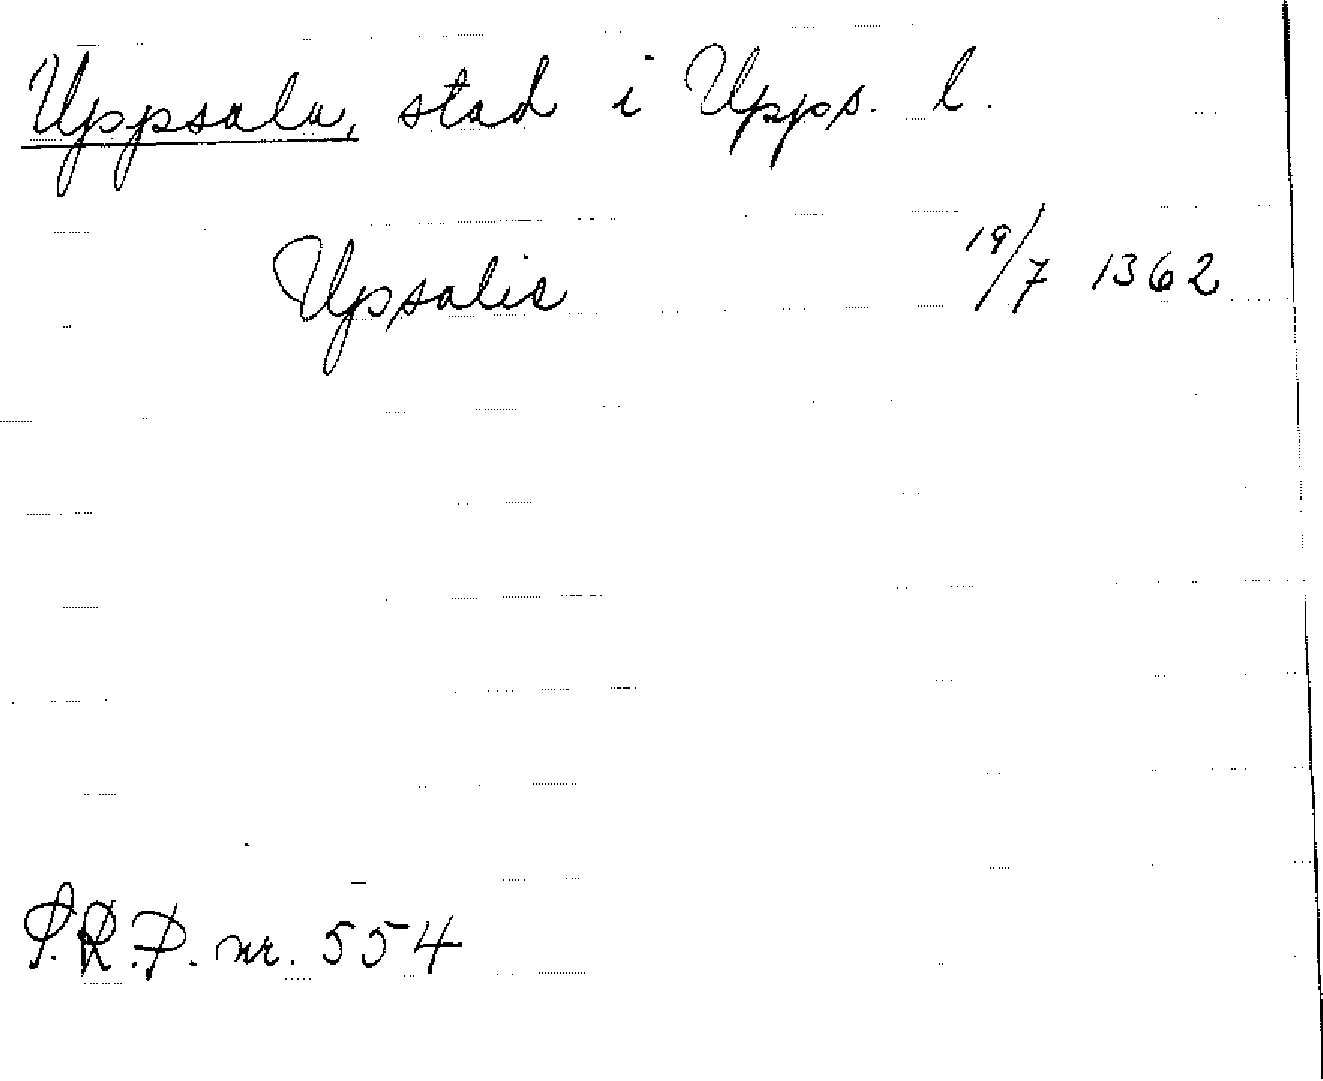 Uppsala, stad i Upps. l.
Upsalie 19/7 1362
S.R.P. nr. 554